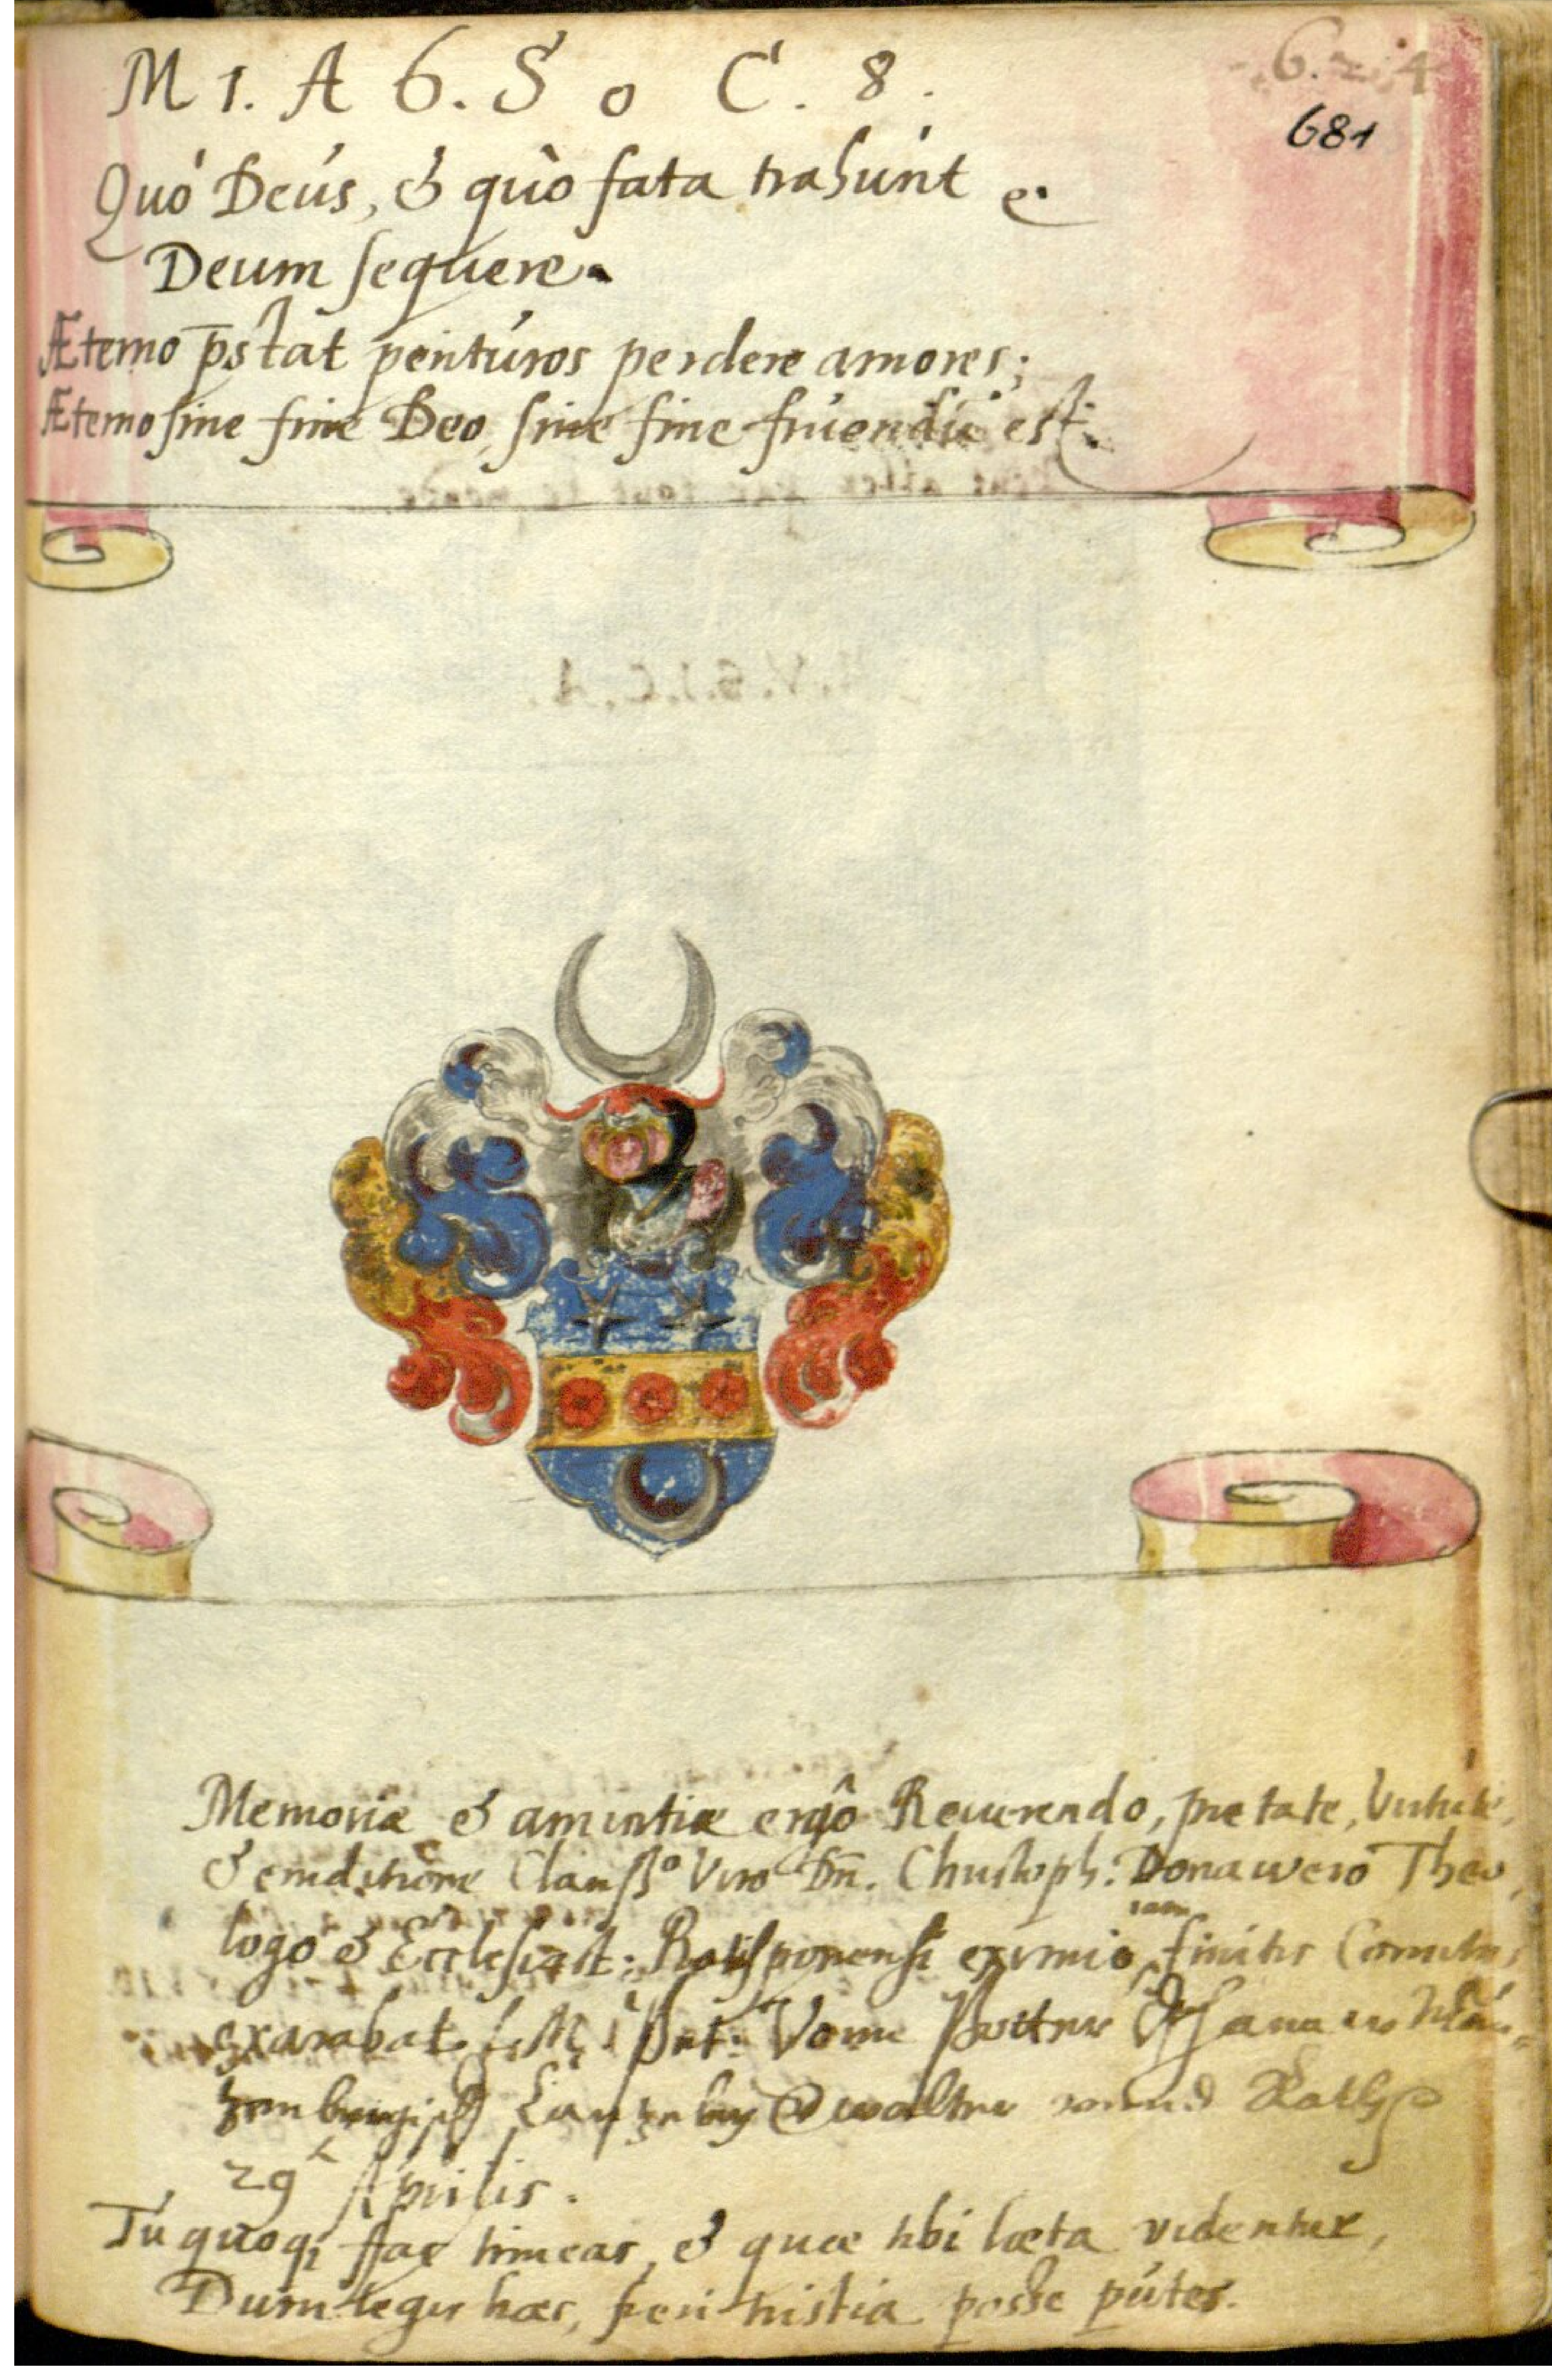 M 1. A 6. S 0 C. 8.
6. 2. 4
681
Quò Deus, & quò fata trahunt e.
Deum sequere.
Æterno p̄stat perituros perdere amores;
Æterno sine fine Deo, sine fine fruendū est.
Memoriæ & amicitiæ ergô Reverendo, pietate, Virtute,
& eruditione Clariss.º Viro Dn̄. Christoph: Donawero Theo,
logo & Ecclesiast: Ratisponensi eximio, iam finitis Comitiis
exarabat
29 Aprilis.
Tu quoqȝ fac timeas, & quæ tibi læta videntur,
Dum legis hæc, fieri tristia posse putes.